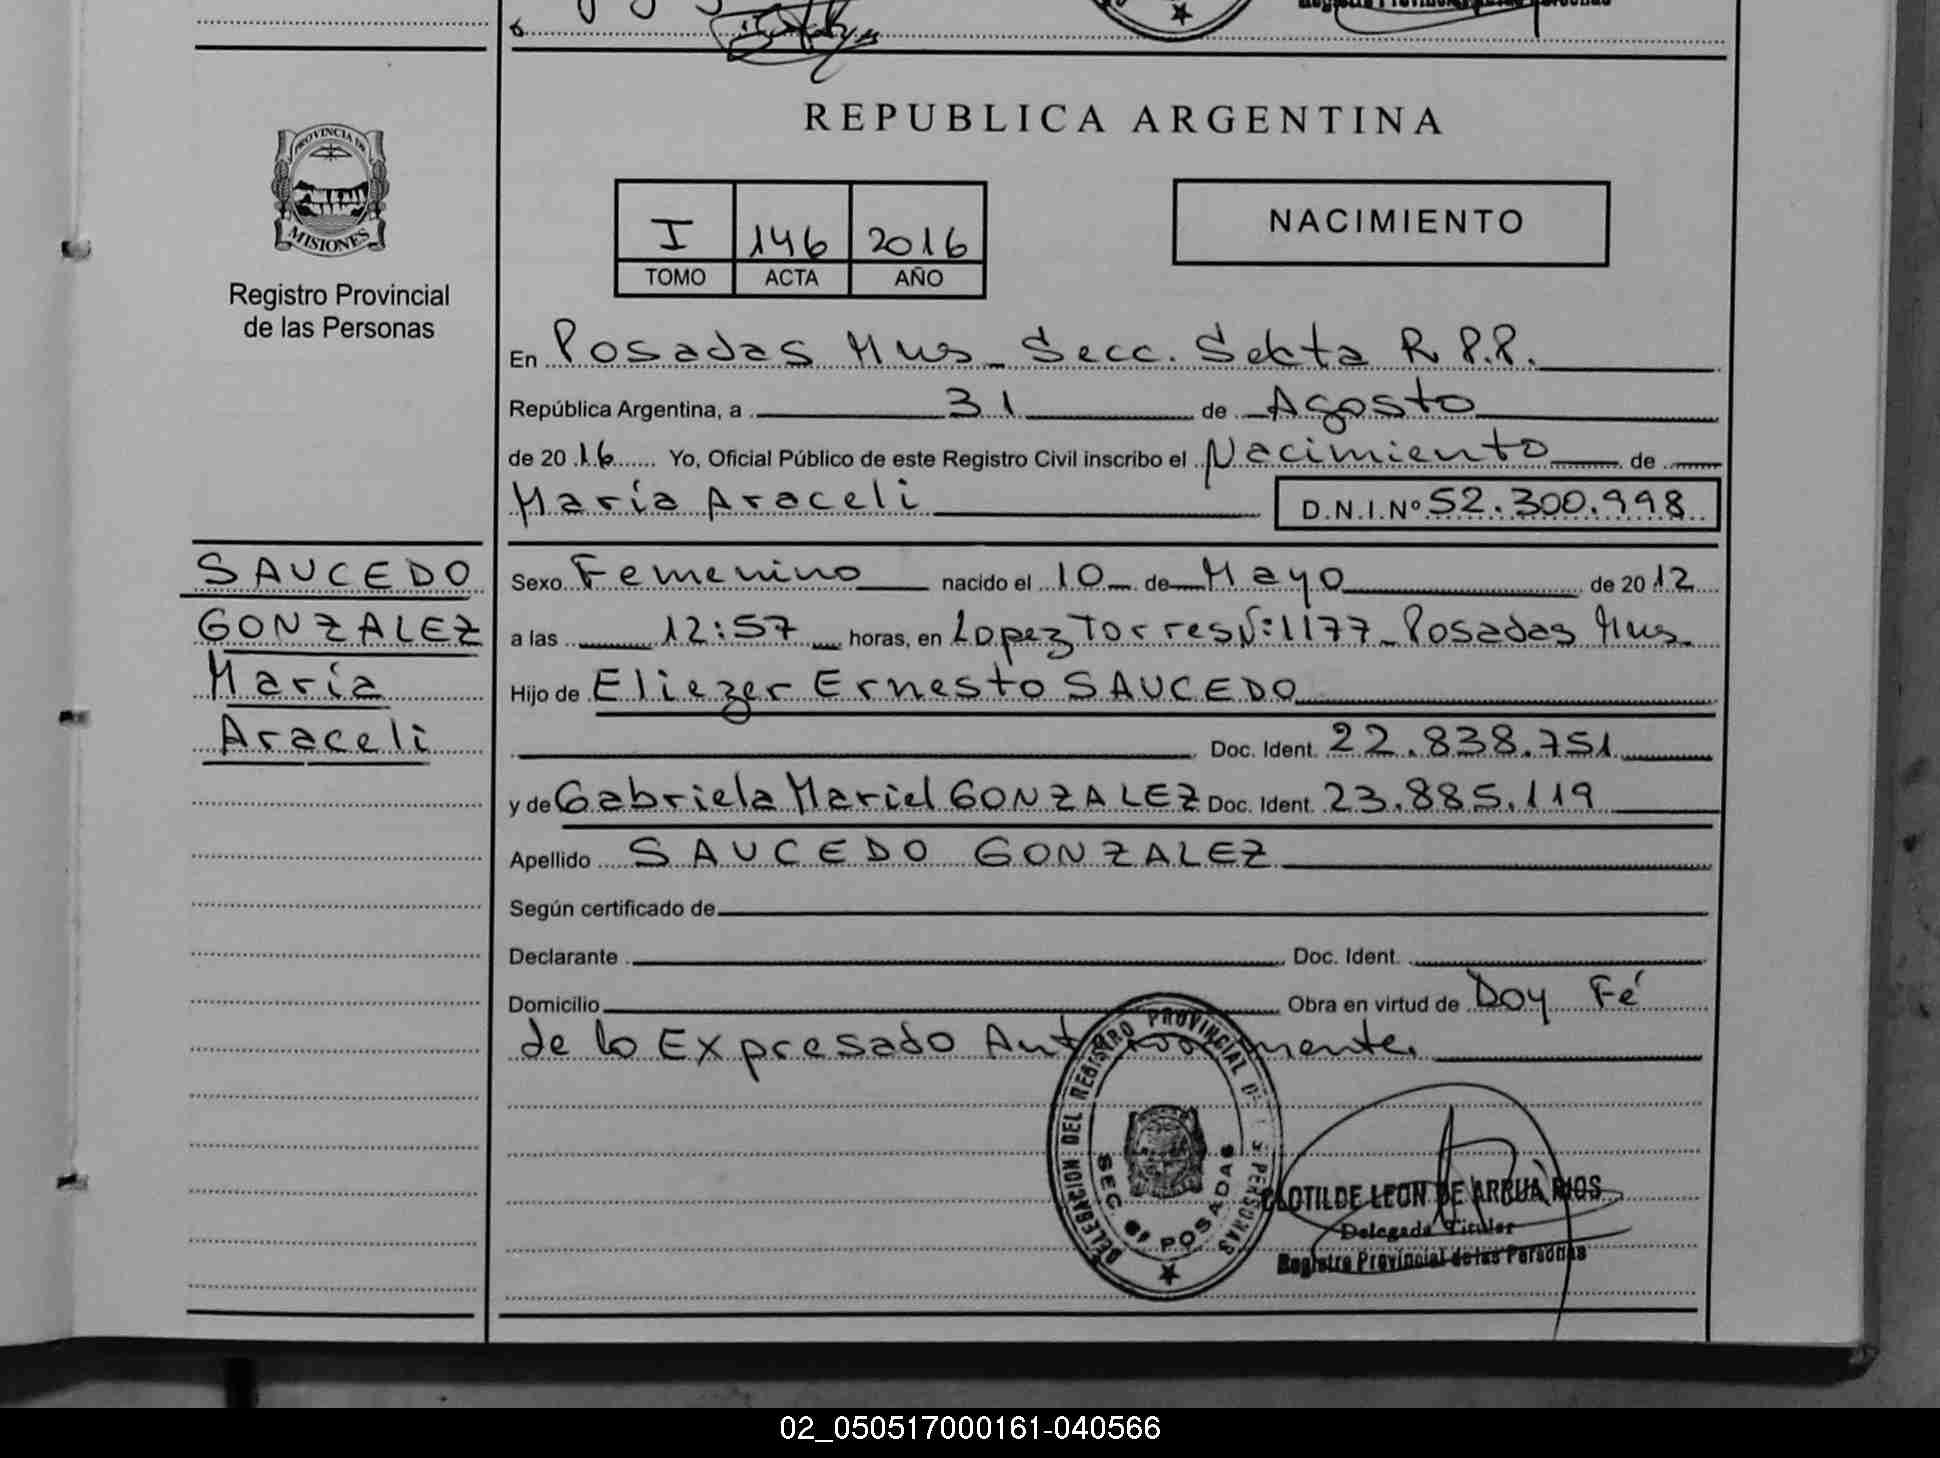 REPUBLICA ARGENTINA
PROVINCIA DE
MISIONES
Registro Provincial
de las Personas
I 146 2016
TOMO ACTA AÑO
NACIMIENTO
En Posadas Mnes Secc. Sexta R.P.P.
República Argentina, a 31 de Agosto
de 2016 Yo, Oficial Público de este Registro Civil inscribo el Nacimiento de
María Araceli D.N.I.Nº 52.300.998
SAUCEDO
GONZALEZ
María
Araceli
Sexo Femenino nacido el 10 de Mayo de 2012
a las 12:57 horas, en Lopez Torres Nº: 1177 - Posadas Mnes
Hijo de Eliezer Ernesto SAUCEDO
Doc. Ident. 22.838.751
y de Gabriela Mariel GONZALEZ Doc. Ident. 23.885.119
Apellido SAUCEDO GONZALEZ
Según certificado de
Declarante Doc. Ident.
Domicilio Obra en virtud de Doy Fé
de lo Expresado Anteriormente.
DELEGACION DEL REGISTRO PROVINCIAL DE LAS PERSONAS
SEC. 6ª POSADAS
CLOTILDE LEON DE ARRUA RIOS
Delegada Titular
Registro Provincial de las Personas
02_050517000161-040566